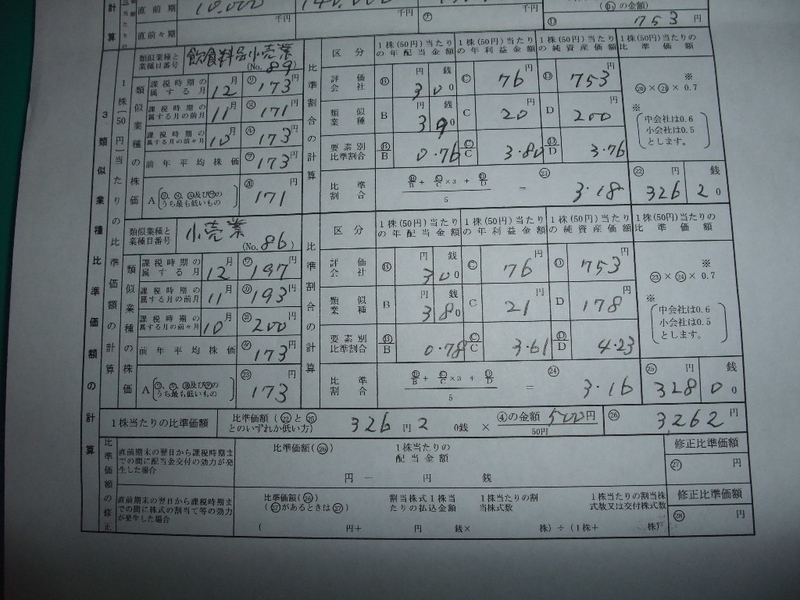 直前期 10,000 千円
直前々期 千円
の金額 753 円
計算
3 類似業種比準価額の計算
1株(50円)当たりの比準価額の計算
類似業種と業種目番号 飲食料品小売業 (No. 89)
区分
1株(50円)当たりの年配当金額
1株(50円)当たりの年利益金額
1株(50円)当たりの純資産価額
1株(50円)当たりの比準価額
類似業種の株価
課税時期の属する月 12月 173円
課税時期の属する月の前月 11月 171
課税時期の属する月の前々月 10月 173
前年平均株価 173円
A うち最も低いもの ⑳ 171円
比準割合の計算
評価会社 Ⓑ 3円00銭 Ⓒ 76円 Ⓓ 753円
類似業種 B 3 90 C 20 D 200
要素別比準割合 Ⓑ/B 0.76 Ⓒ/C 3.80 Ⓓ/D 3.76
比準割合 Ⓑ/B + Ⓒ/C ×3 + Ⓓ/D / 5 = ㉑ 3.18
※ ⑳×㉑×0.7
※ 中会社は0.6
小会社は0.5
とします。
㉒ 326円20銭
類似業種と業種目番号 小売業 (No. 86)
区分
1株(50円)当たりの年配当金額
1株(50円)当たりの年利益金額
1株(50円)当たりの純資産価額
1株(50円)当たりの比準価額
類似業種の株価
課税時期の属する月 12月 197円
課税時期の属する月の前月 11月 193
課税時期の属する月の前々月 10月 200
前年平均株価 173円
A うち最も低いもの ㉓ 173円
比準割合の計算
評価会社 Ⓑ 3円00銭 Ⓒ 76円 Ⓓ 753円
類似業種 B 3 80 C 21 D 178
要素別比準割合 Ⓑ/B 0.78 Ⓒ/C 3.61 Ⓓ/D 4.23
比準割合 Ⓑ/B + Ⓒ/C ×3 + Ⓓ/D / 5 = ㉔ 3.16
※ ㉓×㉔×0.7
※ 中会社は0.6
小会社は0.5
とします。
㉕ 328円00銭
1株当たりの比準価額 比準価額(㉒と㉕とのいずれか低い方) 326円20銭 × ④の金額 500円 / 50円 ㉖ 3262円
比準価額の修正
直前期末の翌日から課税時期までの間に配当金交付の効力が発生した場合
比準価額(㉖) 1株当たりの配当金額
円 - 円 銭
修正比準価額 ㉗ 円
直前期末の翌日から課税時期までの間に株式の割当て等の効力が発生した場合
比準価額(㉖)(㉗があるときは㉗) 割当株式1株当たりの払込金額 1株当たりの割当株式数 1株当たりの割当株式数又は交付株式数
( 円+ 円 銭× 株)÷(1株+ 株)
修正比準価額 ㉘ 円